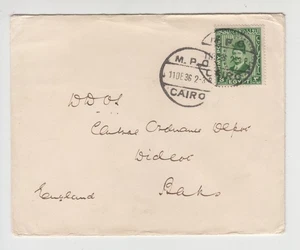 M.P.O.
11 DE 36
CAIRO
D.D.O.S.
Central Ordnance Depot
Didcot
England
Berks